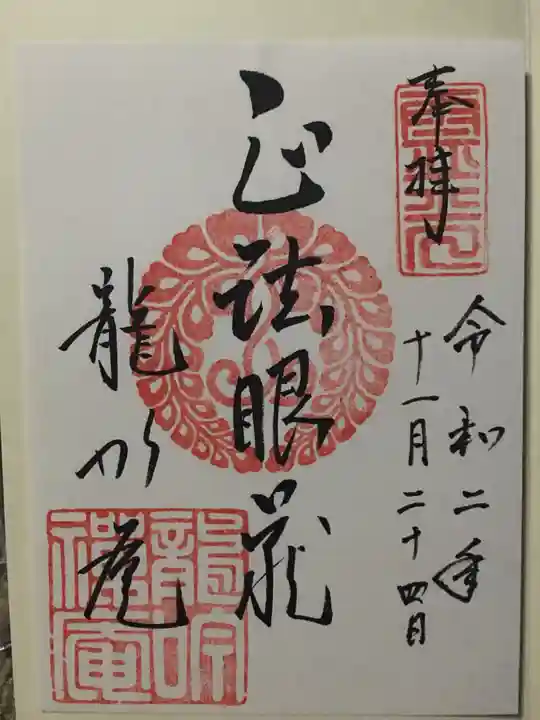 奉拝
令和二年
十一月二十四日
正法眼蔵
龍吟庵
龍吟
禅庵